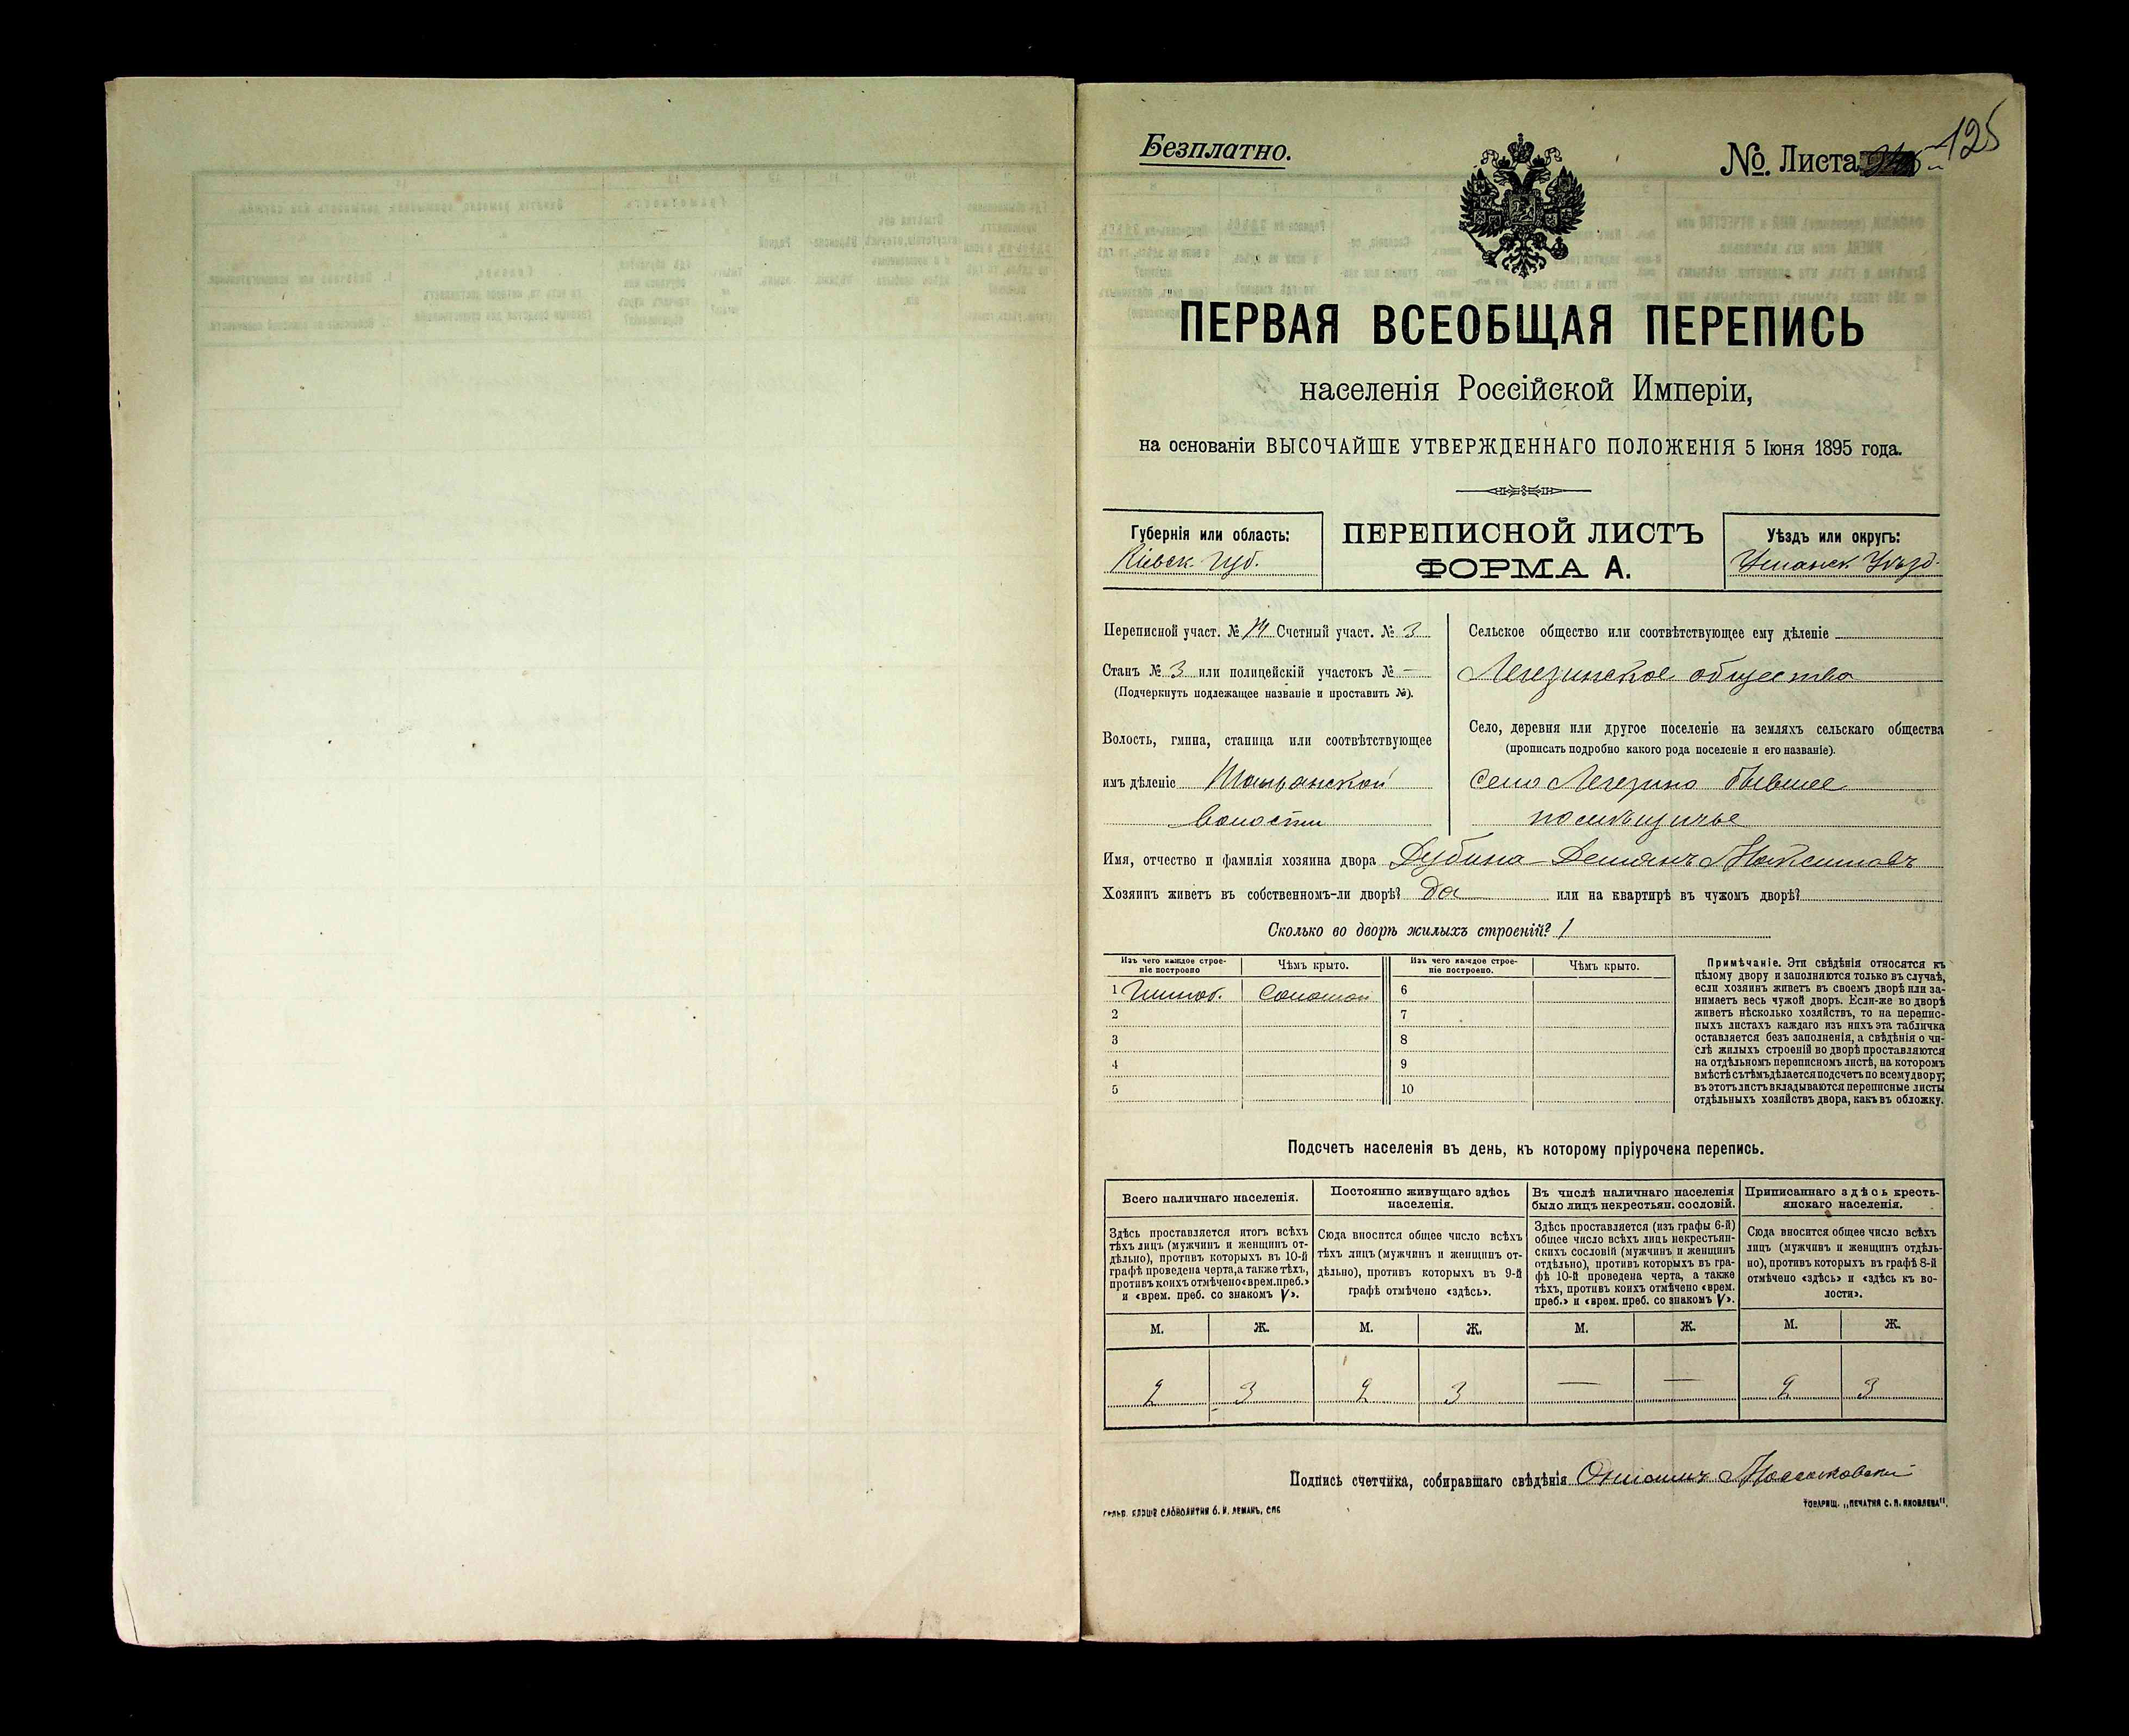 Безплатно.
№. Листа 125
ПЕРВАЯ ВСЕОБЩАЯ ПЕРЕПИСЬ
населенія Россійской Имперіи,
на основаніи ВЫСОЧАЙШЕ УТВЕРЖДЕННАГО ПОЛОЖЕНІЯ 5 Іюня 1895 года.
Губернія или область:
Кіевск. Губ.
ПЕРЕПИСНОЙ ЛИСТЪ
ФОРМА А.
Уѣздъ или округъ:
Уманск. Уѣзд.
Переписной участ. № Счетный участ. № 3
Станъ № 3 или полицейскій участокъ № —
(Подчеркнуть подлежащее названіе и проставить №).
Волость, гмина, станица или соотвѣтствующее
имъ дѣленіе Тальянской
волости
Сельское общество или соотвѣтствующее ему дѣленіе
Легезинское общество
Село, деревня или другое поселеніе на земляхъ сельскаго общества
(прописать подробно какого рода поселеніе и его названіе).
Село Легезино бывшее
помѣщичье
Имя, отчество и фамилія хозяина двора Дубина - Демянъ Максимовъ
Хозяинъ живетъ въ собственномъ-ли дворѣ? Да или на квартирѣ въ чужомъ дворѣ?
Сколько во дворѣ жилыхъ строеній? 1
Изъ чего каждое строе-
ніе построено
Чѣмъ крыто.
Изъ чего каждое строе-
ніе построено.
Чѣмъ крыто.
1 соломой 6
2 7
3 8
4 9
5 10
Примѣчаніе. Эти свѣдѣнія относятся къ
цѣлому двору и заполняются только въ случаѣ,
если хозяинъ живетъ въ своемъ дворѣ или за-
нимаетъ весь чужой дворъ. Если-же во дворѣ
живетъ нѣсколько хозяйствъ, то на перепис-
ныхъ листахъ каждаго изъ нихъ эта табличка
оставляется безъ заполненія, а свѣдѣнія о чи-
слѣ жилыхъ строеній во дворѣ проставляются
на отдѣльномъ переписномъ листѣ, на которомъ
вмѣстѣ съ тѣмъ дѣлается подсчетъ по всему двору;
въ этотъ листъ вкладываются переписные листы
отдѣльныхъ хозяйствъ двора, какъ въ обложку.
Подсчетъ населенія въ день, къ которому пріурочена перепись.
Всего наличнаго населенія.
Здѣсь проставляется итогъ всѣхъ
тѣхъ лицъ (мужчинъ и женщинъ от-
дѣльно), противъ которыхъ въ 10-й
графѣ проведена черта, а также тѣхъ,
противъ коихъ отмѣчено «врем. преб.»
и «врем. преб. со знакомъ V».
Постоянно живущаго здѣсь
населенія.
Сюда вносится общее число всѣхъ
тѣхъ лицъ (мужчинъ и женщинъ от-
дѣльно), противъ которыхъ въ 9-й
графѣ отмѣчено «здѣсь».
Въ числѣ наличнаго населенія
было лицъ некрестьян. сословій.
Здѣсь проставляется (изъ графы 6-й)
общее число всѣхъ лицъ некрестьян-
скихъ сословій (мужчинъ и женщинъ
отдѣльно), противъ которыхъ въ гра-
фѣ 10-й проведена черта, а также
тѣхъ, противъ коихъ отмѣчено «врем.
преб.» и «врем. преб. со знакомъ V».
Приписаннаго здѣсь кресть-
янскаго населенія.
Сюда вносится общее число всѣхъ
лицъ (мужчинъ и женщинъ отдѣль-
но), противъ которыхъ въ графѣ 8-й
отмѣчено «здѣсь» и «здѣсь къ во-
лости».
М. Ж. М. Ж. М. Ж. М. Ж.
2 3 2 3 — — 2 3
Подпись счетчика, собиравшаго свѣдѣнія
СЛОВОЛИТНИ О. И. ЛЕМАНЪ, СПБ
ТОВАРИЩ. „ПЕЧАТНЯ С. П. ЯКОВЛЕВА".